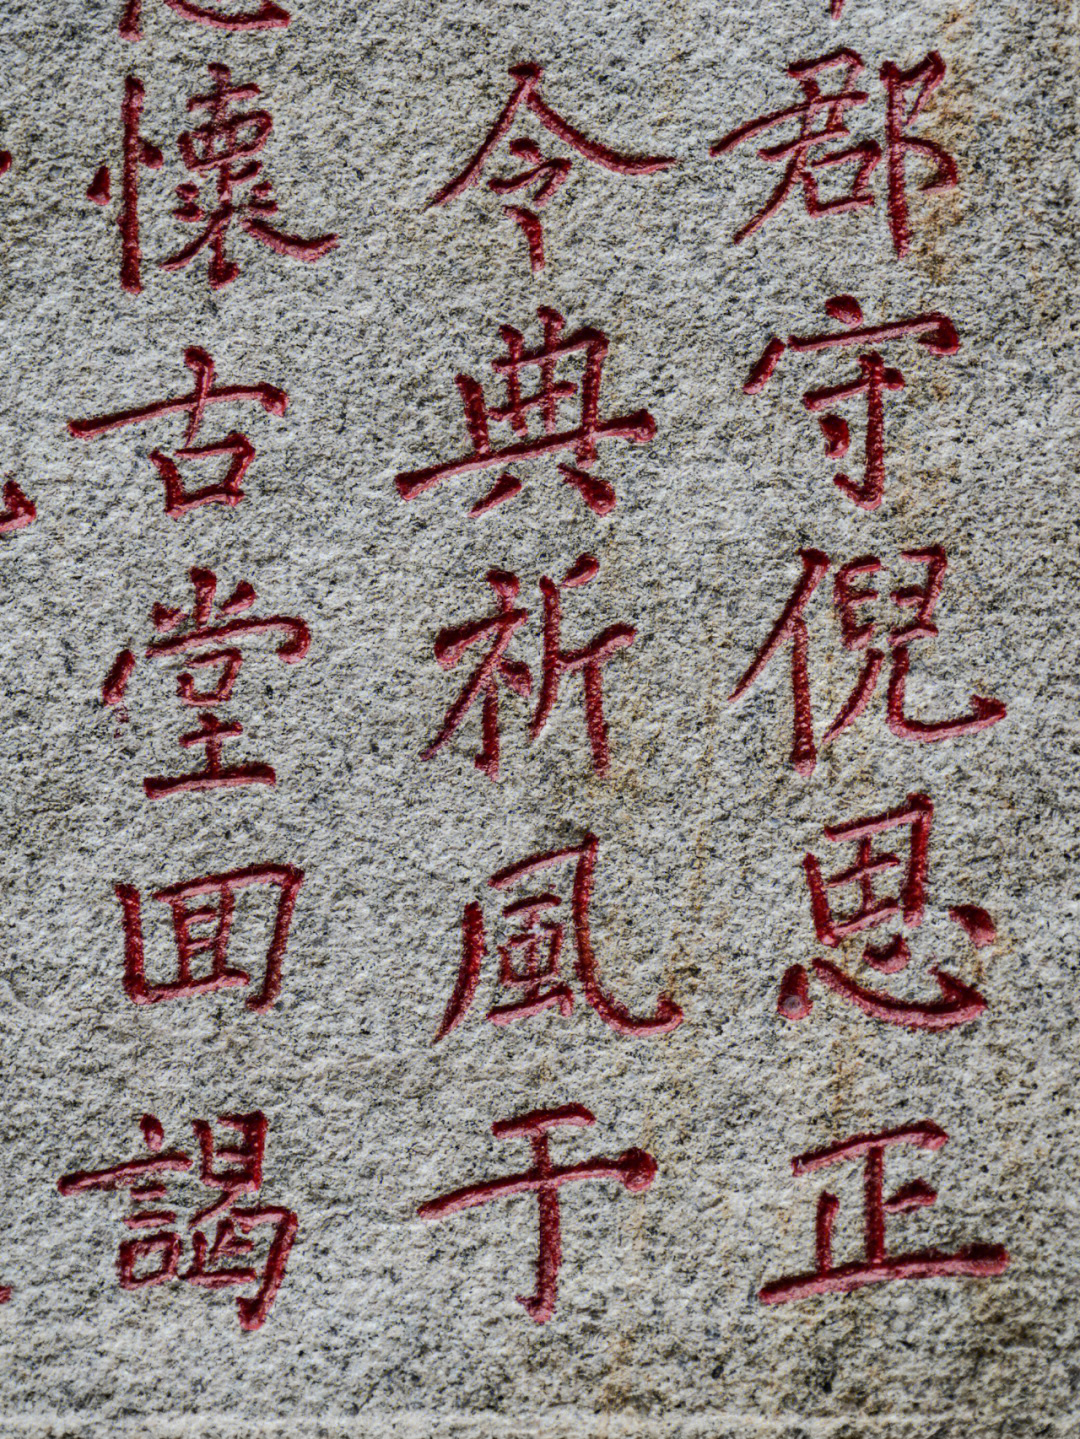 郡守倪思正
令典祈風于
懷古堂回謁